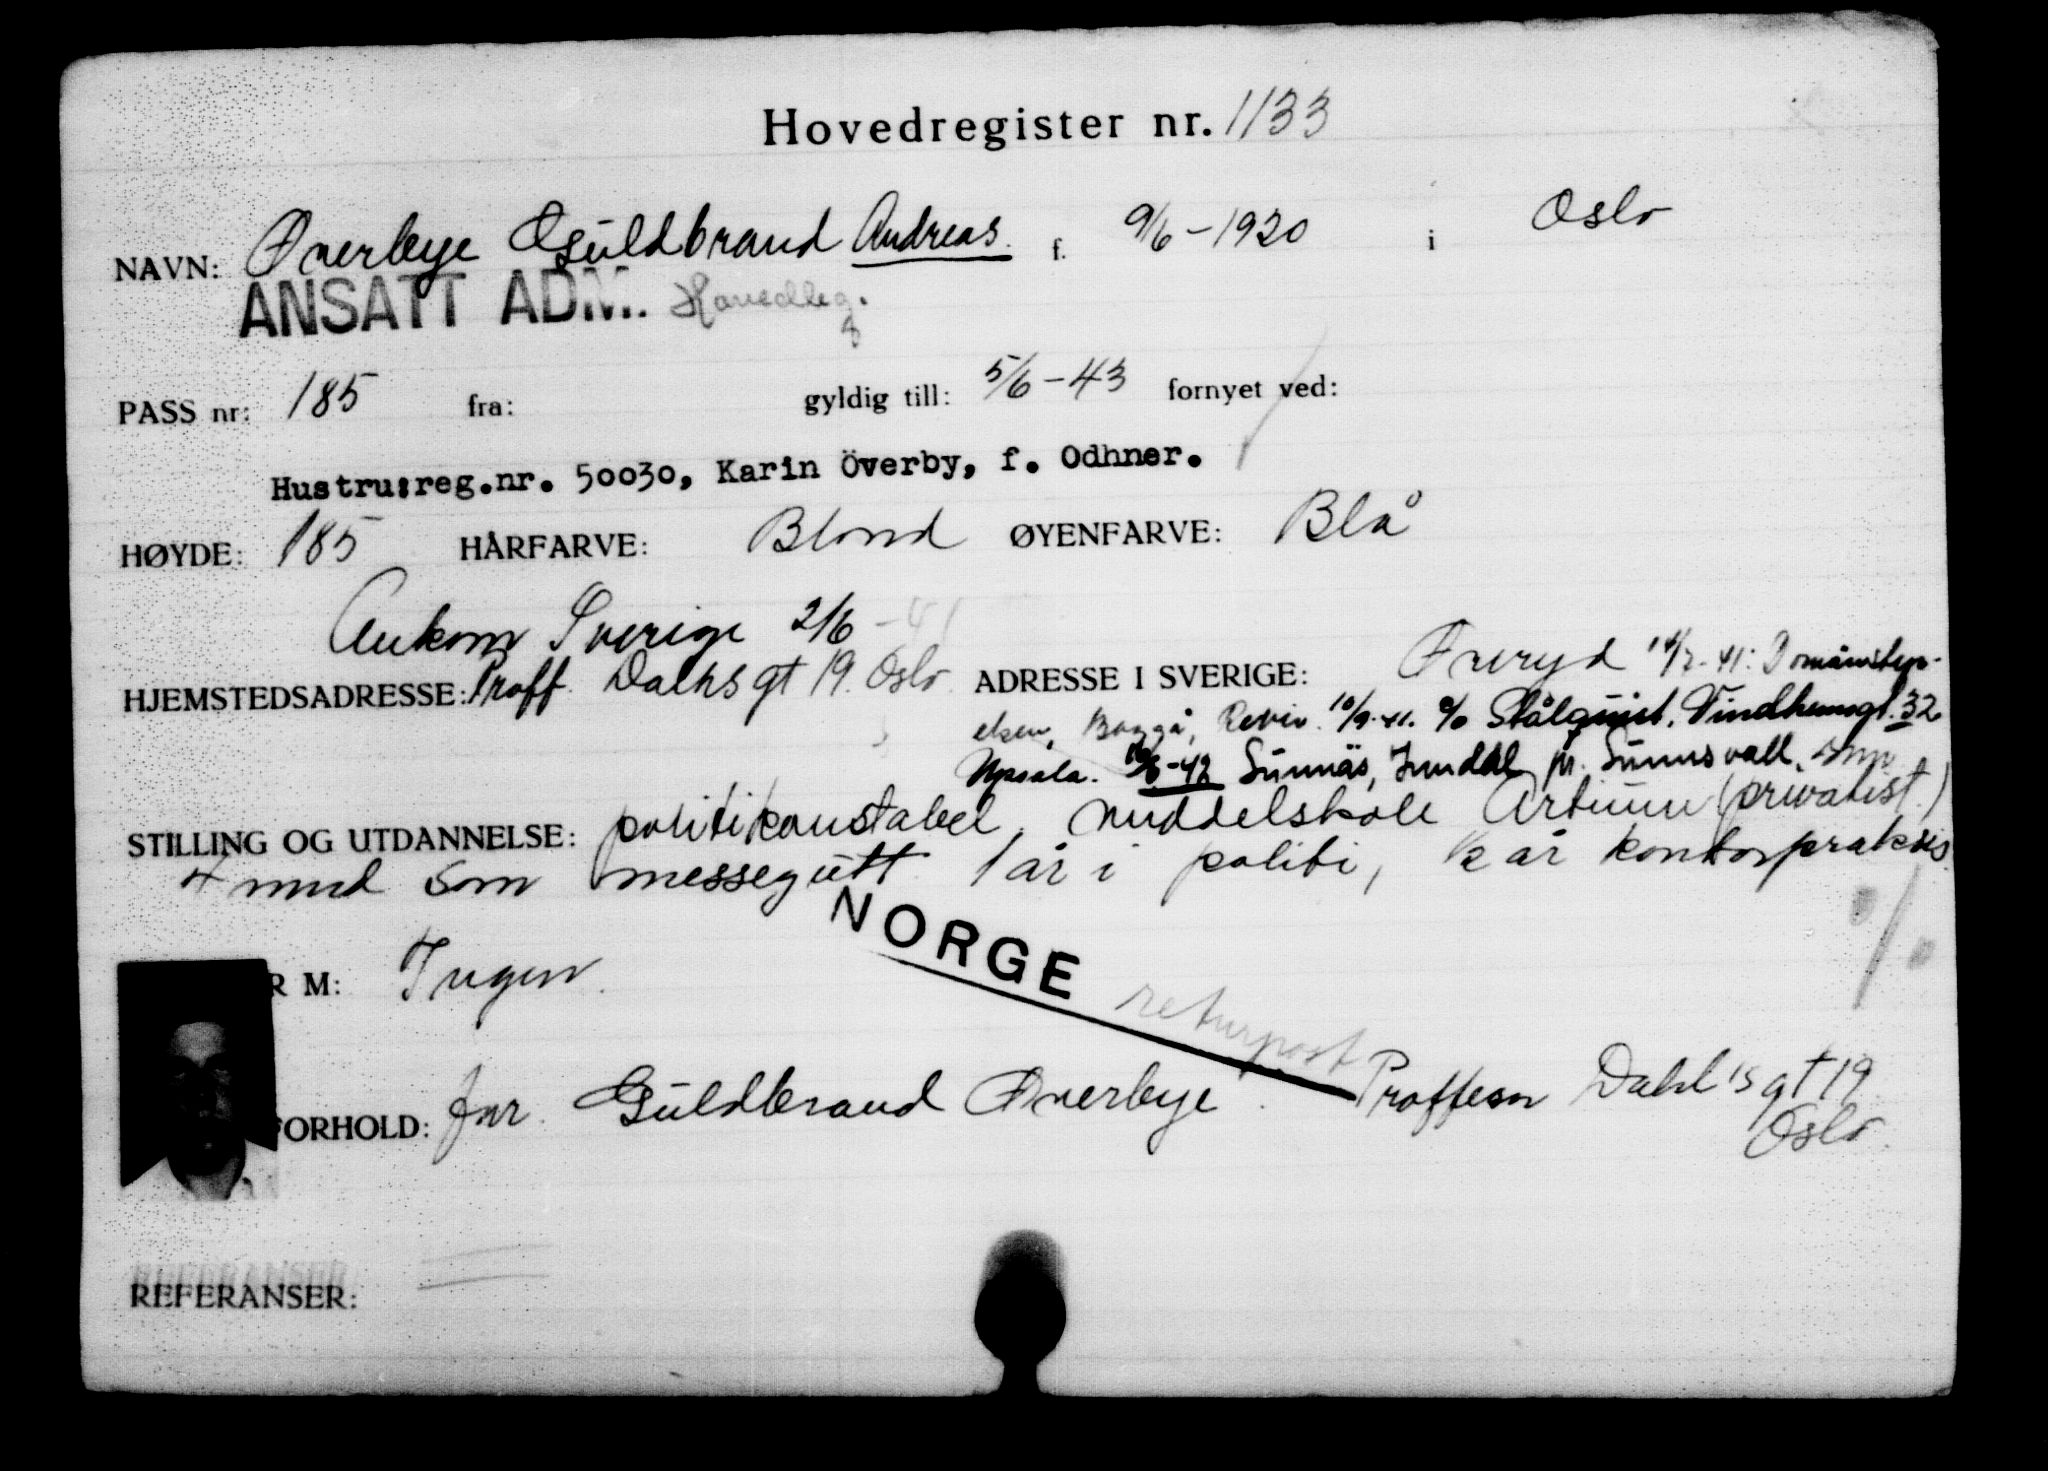 Hovedregister nr. 1133
NAVN: Øverbye Guldbrand Andreas. f. 9/6-1920 i Oslo
ANSATT ADM. Hovedleg.
PASS nr: 185 fra: gyldig till: 5/6-43 fornyet ved:
Hustru:reg.nr. 50030, Karin Överby, f. Odhner.
HØYDE: 185 HÅRFARVE: Blond ØYENFARVE: Blå
Ankom Sverige 2/6-41
HJEMSTEDSADRESSE: Proff. Dahls gt 19. Oslo ADRESSE I SVERIGE: Øreryd 14/7-41: Domänstyr-
elsen, Revir. 10/9-41. c/o Stålquist. Vindhemsgt. 32
Upsala. Sunnäs, Inndal pr. Sundsvall.
STILLING OG UTDANNELSE: politikonstabel, middelskole Artium (privatist.)
4 mnd som messegutt 1 år i politi, ½ år kontorpraksis
R M: Ingen.
NORGE
returpost
FORHOLD: far. Guldbrand Øverbye. Proffesor Dahl's gt 19
Oslo.
REFERANSER: